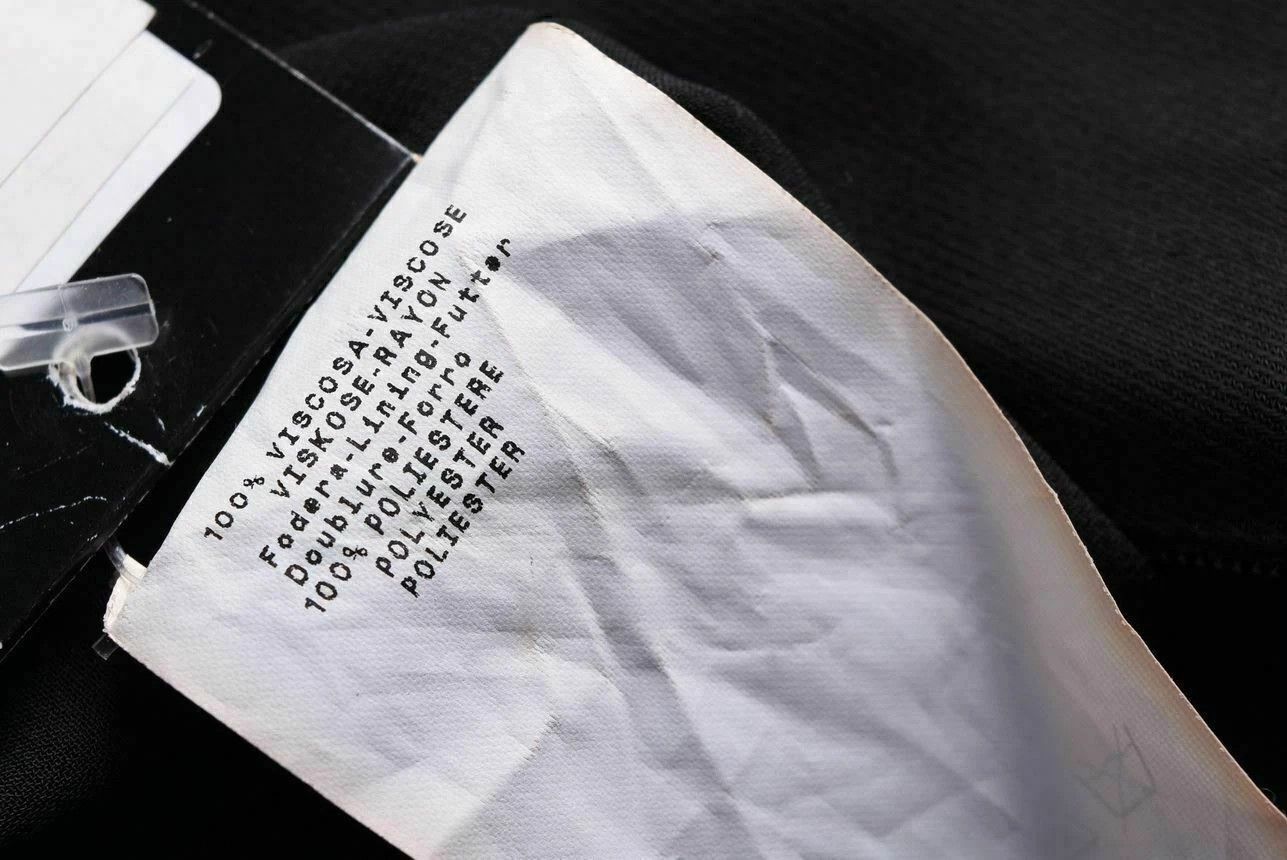 100% VISCOSA-VISCOSE
VISKOSE-RAYON
Fodera-Lining-Futter
Doublure-Forro
100% POLIESTERE
POLYESTER
POLIESTER